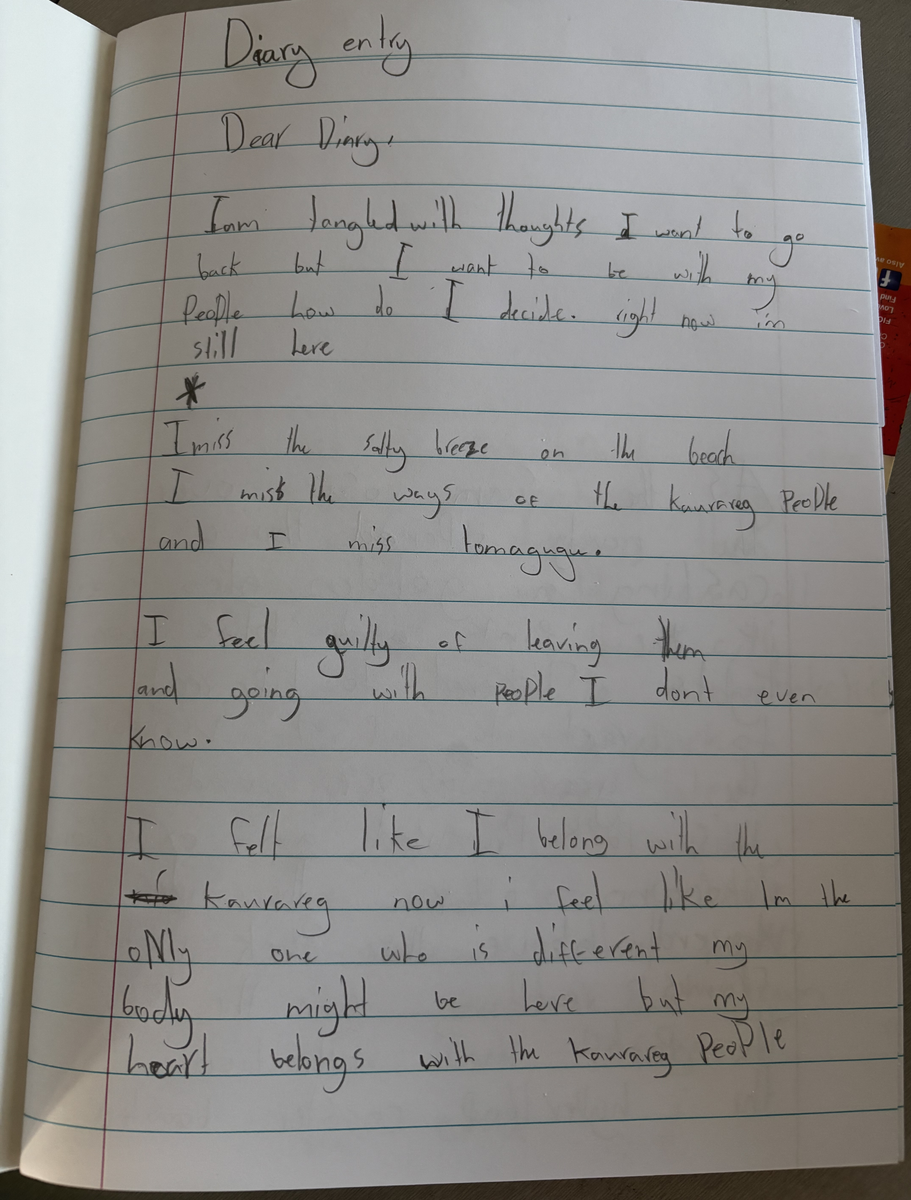 Diary entry
Dear Diary,
I am tangled with thoughts I want to go
back but I want to be with my
People how do I decide. right now i'm
still here
*
I miss the salty breeze on the beach
I miss the ways of the kaurareg People
and I miss tomagugu.
I feel guilty of leaving them
and going with people I dont even
know.
I felt like I belong with the
Kaurareg now i feel like Im the
oNly one who is different my
body might be here but my
heart belongs with the kaurareg PeoPle
Also av
f
Find